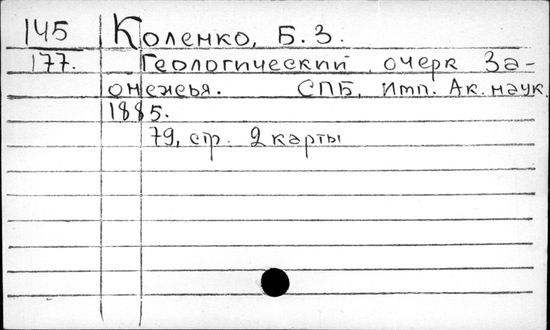 145 Коленко, Б. З.
177. Геологический очерк За-
онежья. СПБ, Имп. Ак. наук.
1885.
79, стр. 2 карты